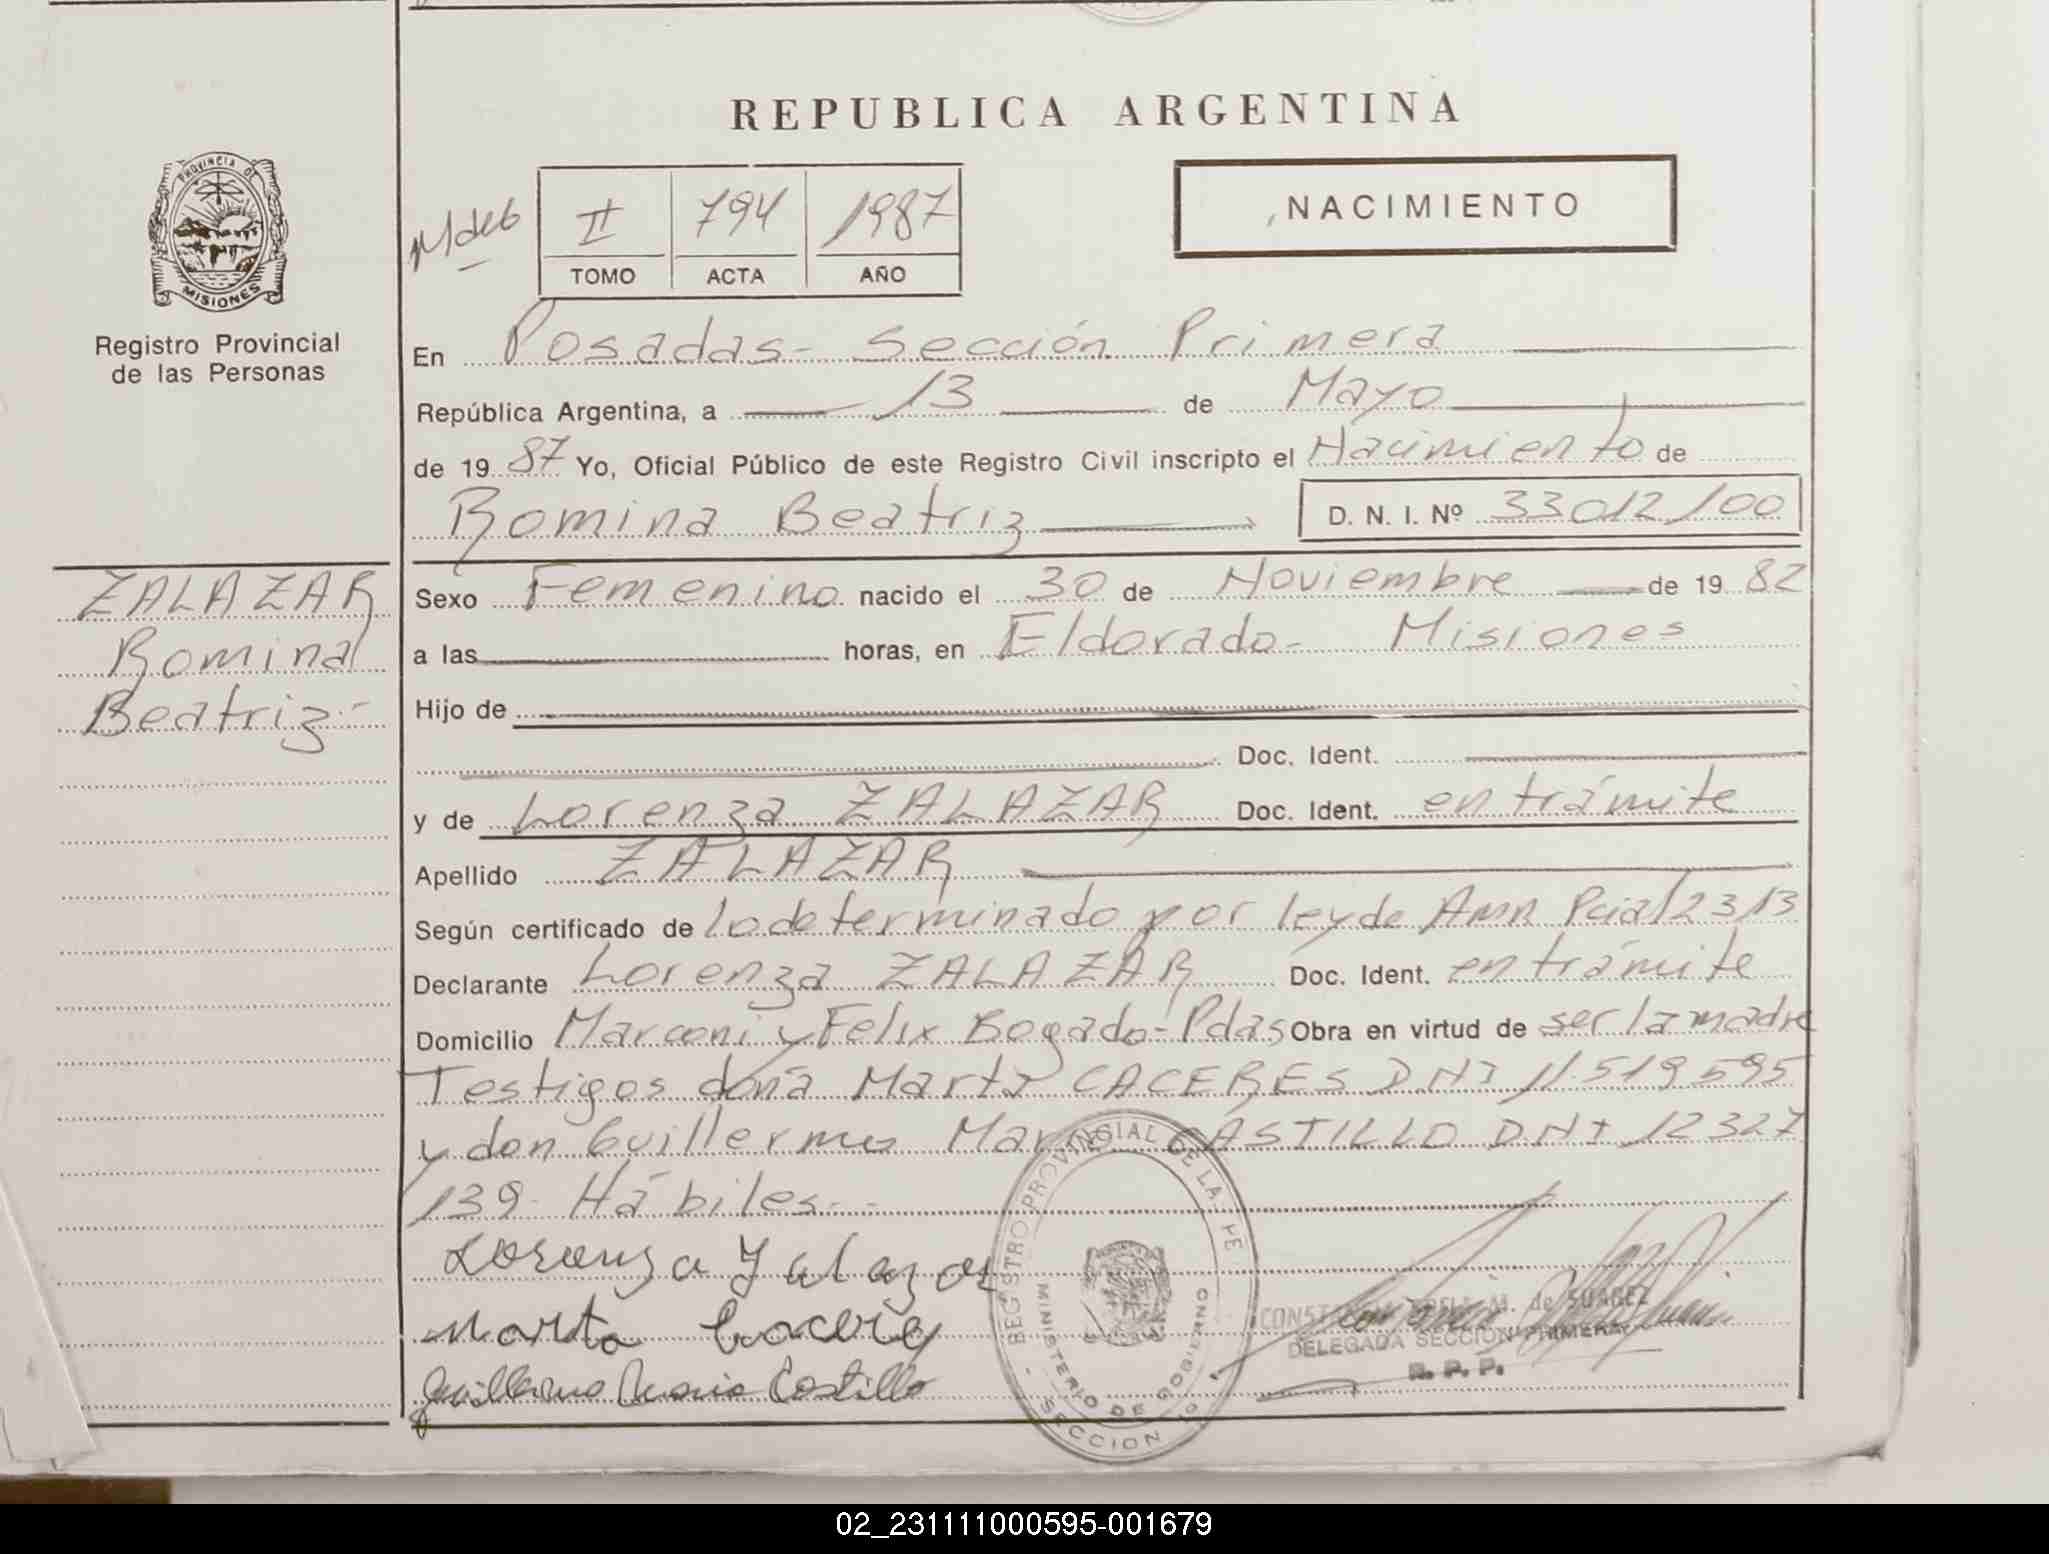 REPUBLICA ARGENTINA
PROVINCIA DE
MISIONES
Registro Provincial
de las Personas
II 794 1987
TOMO ACTA AÑO
NACIMIENTO
En Posadas - Sección Primera
República Argentina, a 13 de Mayo
de 1987 Yo, Oficial Público de este Registro Civil inscripto el Nacimiento de
Romina Beatriz D. N. I. Nº 33012100
ZALAZAR
Romina
Beatriz-
Sexo Femenino nacido el 30 de Noviembre de 1982
a las horas, en Eldorado - Misiones
Hijo de
Doc. Ident.
y de Lorenza ZALAZAR Doc. Ident. en trámite
Apellido ZALAZAR
Según certificado de lo determinado por ley de Amn Pcial 2313
Declarante Lorenza ZALAZAR Doc. Ident. en trámite
Domicilio Marconi y Felix Bogado - Pdas Obra en virtud de ser la madre
Testigos doña Marta CACERES DNI 11.519595
y don Guillermo Mario CASTILLO DNI 12327
139 - Hábiles --
Lorenza Zalazar
Marta Caceres
Guillermo Mario Castillo
REGISTRO PROVINCIAL DE LA PE
MINISTERIO DE GOBIERNO
SECCION 1
M. de SUAREZ
DELEGADA SECCION PRIMERA
R. P. P.
02_231111000595-001679